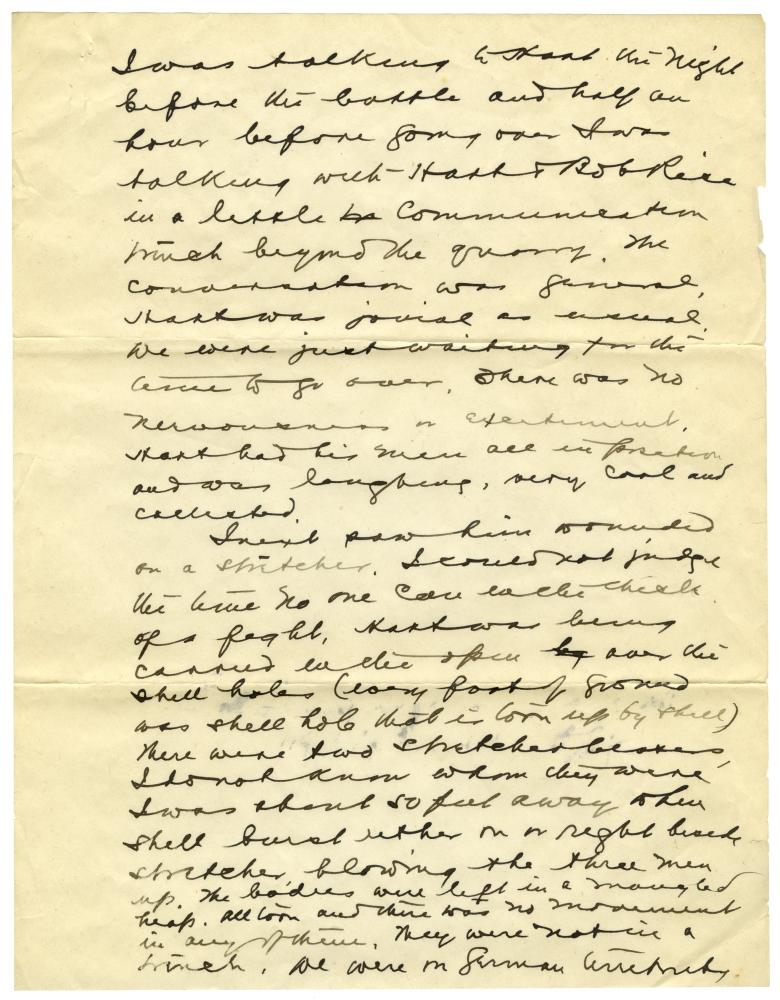 I was talking to Hart the night
before the battle and half an
hour before going over I was
talking with Hart & Bob Rice
in a little communication
trench beyond the quarry. The
conversation was general,
Hart was jovial as usual.
We were just waiting for the
time to go over. There was no
nervousness or excitement.
Hart had his men all in position
and was laughing, very cool and
collected.
I next saw him wounded
on a stretcher. I could not judge
the time no one can in the thick
of a fight. Hart was being
carried in the open by over the
shell holes (every foot of ground
was shell hole that is torn up by shell)
There were two stretcher bearers,
I do not know whom they were
I was about 50 feet away when
shell burst either on or right beside
stretcher, blowing the three men
up. The bodies were left in a mangled
heap. All torn and there was no movement
in any of them. They were not in a
trench. We were on German territory